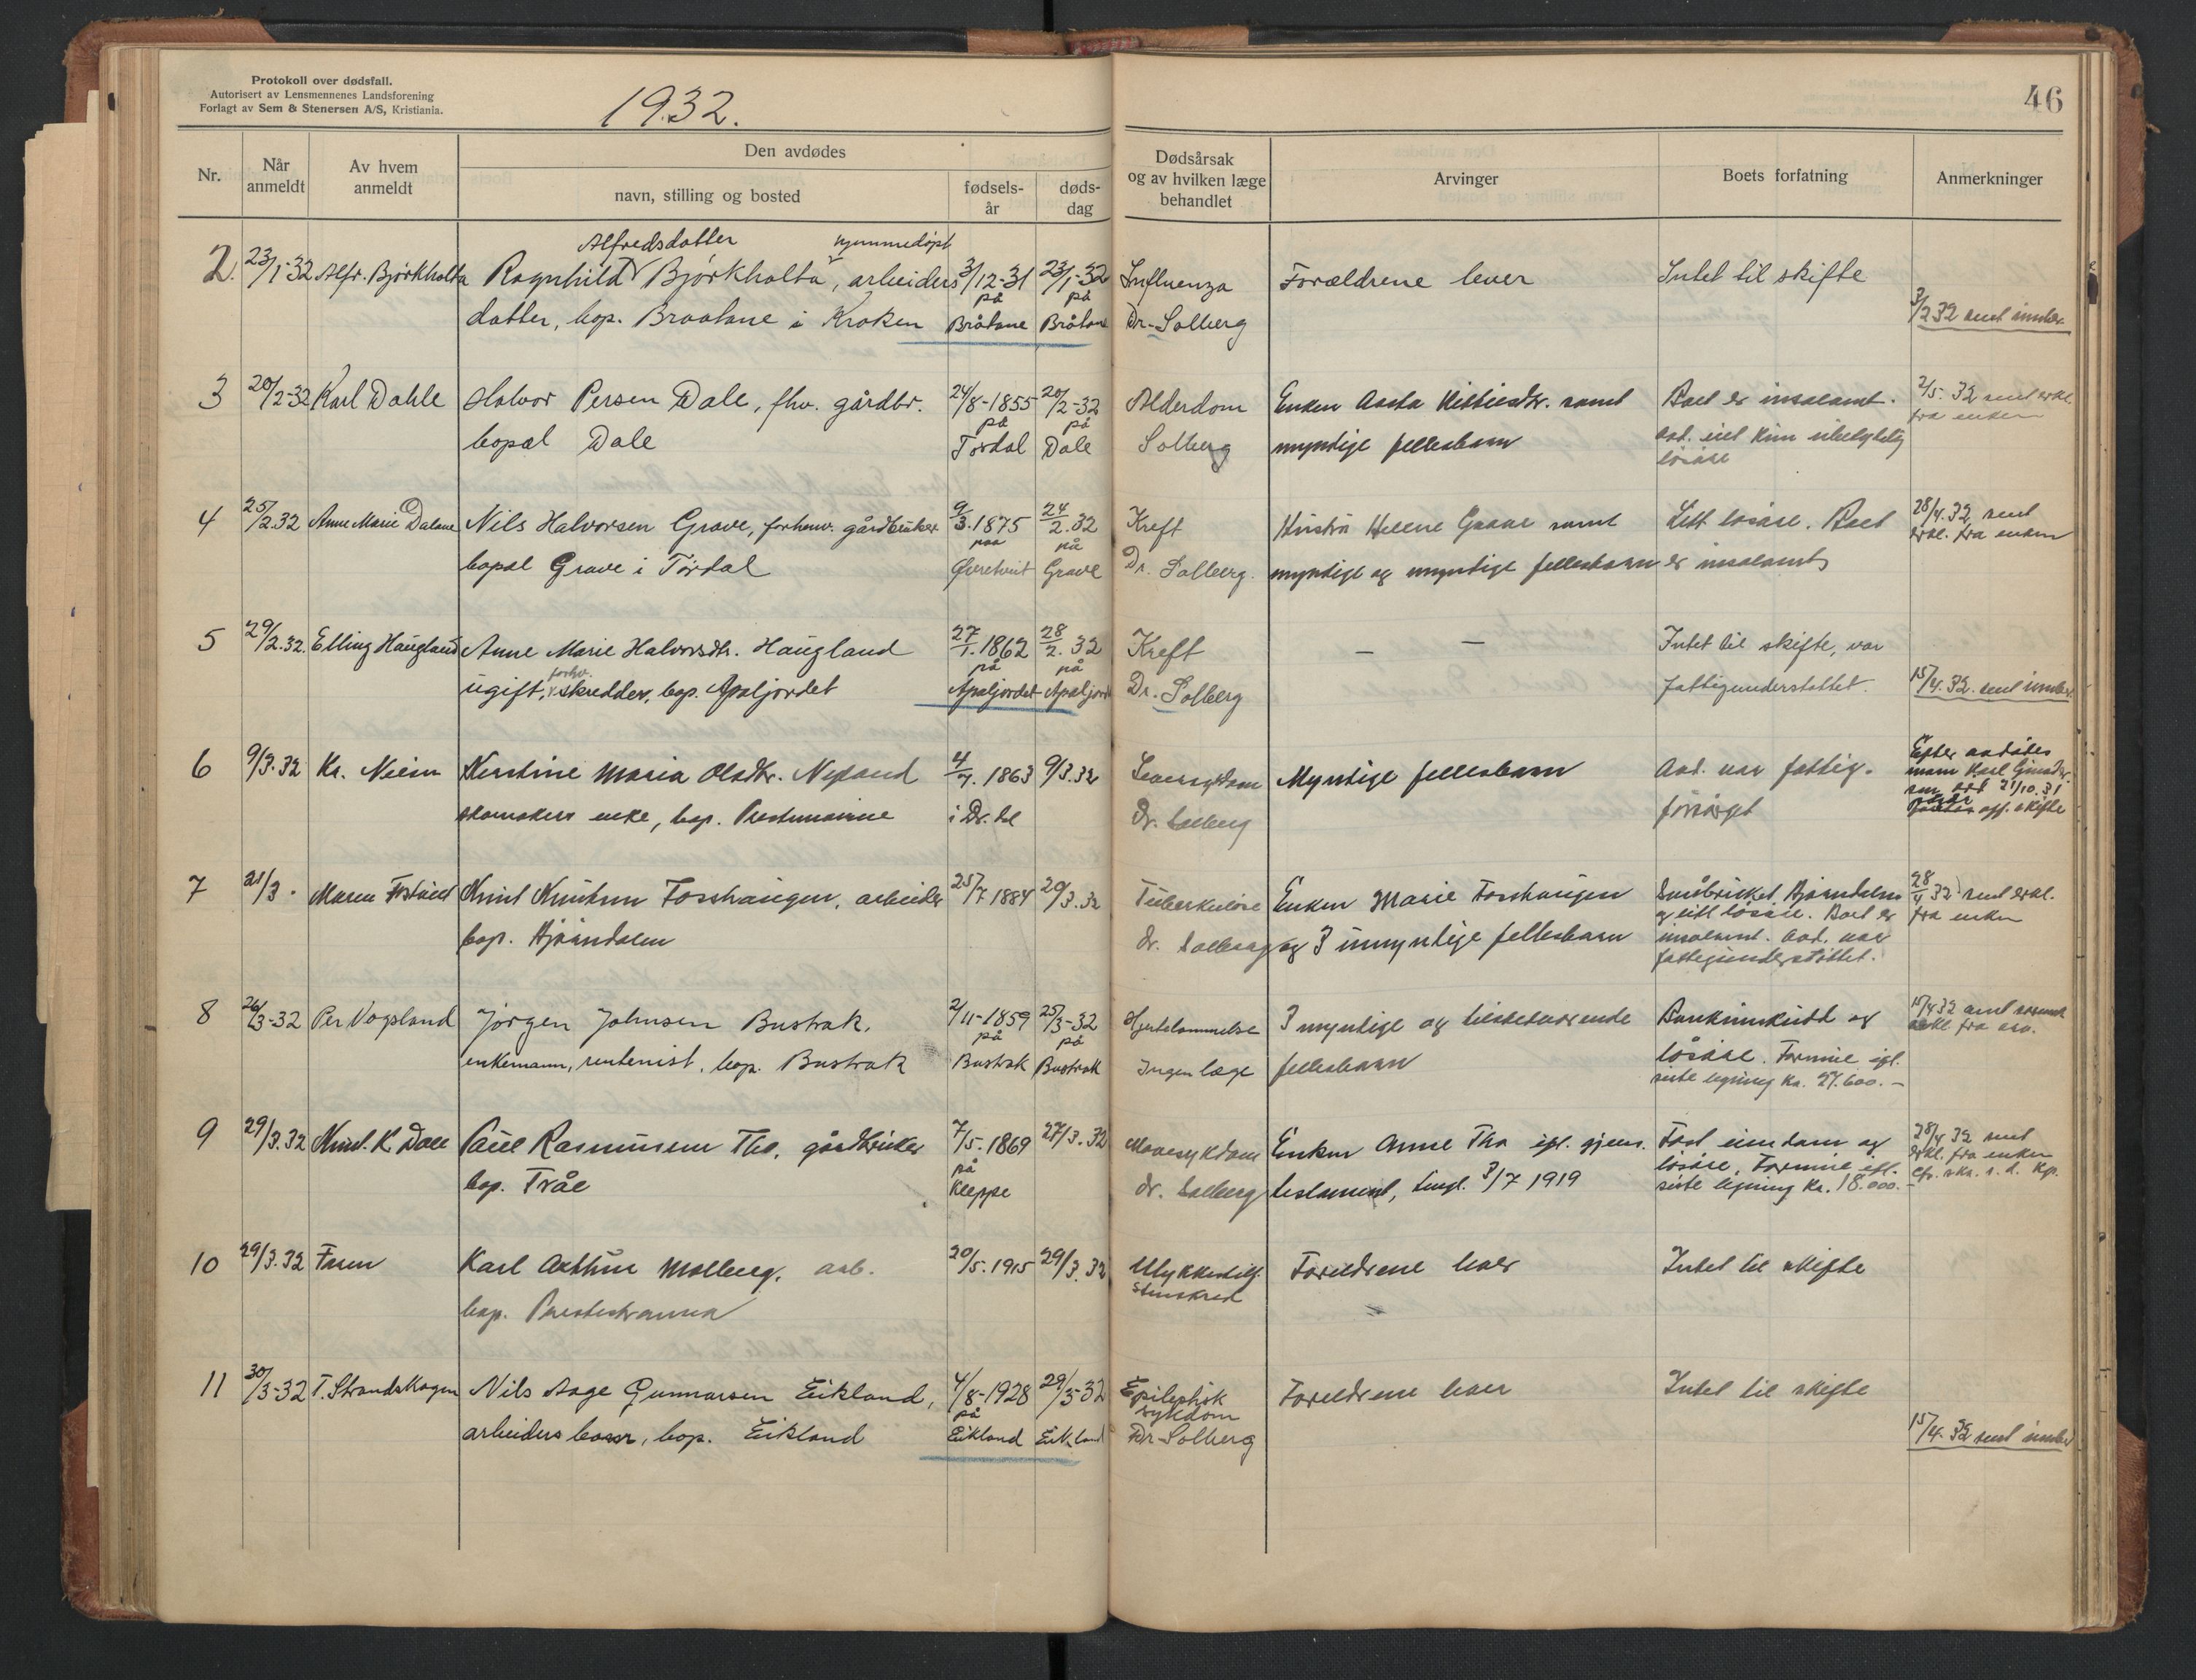 Protokoll over dødsfall.
Autorisert av Lensmennenes Landsforening
Forlagt av Sem & Stenersen A/S, Kristiania.
1932.
46
Nr.
Når anmeldt
Av hvem anmeldt
Den avdødes
navn, stilling og bosted
fødsels-år
døds-dag
Dødsårsak og av hvilken læge behandlet
Arvinger
Boets forfatning
Anmerkninger
Alfredsdatter hjemmedøpt
2. 23/1-32 Alfr. Bjørkholta Ragnhild Bjørkholta, arbeiders 3/12-31 23/1-32 Influenza Forældrene lever Intet til skifte
på på
datter, bop. Braatane i Kroken Bråtane Bråtane Dr. Solberg 3/2 32 sent innber.
3 20/2-32 Karl Dahle Halvor Persen Dale, fhv. gårdbr. 24/8-1855 20/2-32 Alderdom Enken Aasta samt Boet er insolvent. 2/5. 32 sent erkl.
på på fra enken
bopæl Dale Tørdal Dale Solberg myndige fellesbarn avd. eiet kun ubetydelig
løsøre
4 25/2.32 Anne Marie Dalane Nils Halvorsen Grave, forhenv. gårdbruker 9/3.1875 24/2.32 Kreft Hustru Helene Grave samt Litt løsøre. Boet 28/4.32 sent
paa på erkl. fra enken
bopæl Grave i Tørdal Grave Dr. Solberg. myndige og umyndige fellesbarn er insolvent
5 29/2.32. Elling Haugland Anne Marie Halvorsdtr. Haugland 27/1.1862 28/2.32 Kreft — — Intet til skifte, var
forhv. på på
ugift, skredder, bop. Apaljordet Apaljordet Apaljord Dr. Solberg fattigunderstøttet. 15/4.32. sent innber.
6 9/3.32 Kr. Neien Kirstine Maria Olsdtr. Nyland 4/7. 1863 9/3.32 Leversykdom Myndige fellesbarn Avd. var fattig- Efter avdødes
mann Karl
som død 21/10.31
skomakers enke, bop. i Dr. Dr. Solberg forsørget off. skifte
7 21/3. Maren Knut Knutsen Fosshaugen, arbeider 25/7 1884 20/3.32 Tuberkuløse Enken Marie Fosshaugen Småbruket 28/4 32 sent erkl.
og litt løsøre. Boet er fra enken
bop. Dr. Solberg og 3 umyndige fellesbarn insolvent. Avd. var
fattigunderstøttet.
8 26/3-32 Per Vogsland Jørgen Johnsen Bustrak, 2/11-1859 25/3-32 Hjertelammelse 3 myndige og tilstedeværende Bankinnskudd og 15/4 32 sent
på på erkl. fra arv.
enkemann, rentenist, bop. Bustrak Bustrak Bustrak Ingen læge fellesbarn løsøre. Formue efl.
siste ligning kr. 27.600.-
9 29/3.32 Knut. K. Dale Paul Rasmussen Tho, gårdbruker 7/5.1869 27/3.32 Mavesykdom Enken Anne Tho igl. gjens. Fast eiendom og 28/4 32 sent
på løsøre. Formue efl. erkl. fra enken
bop. Tråe Kleppe Dr. Solberg testament, tingl. 3/7 1919 siste ligning kr. 18.000.-
10 29/3.32 Faren Karl Arthur Molberg, arb. 20/5.1915 29/3.32 Ulykkestilf. Foreldrene lever Intet til skifte
Stenskred
bop. Prestestranna
11 30/3-32 T. Strandskogen Nils Aage Gunnarsen Eikland, 4/8-1928 29/3-32 Epileptisk Foreldrene lever Intet til skifte
på sykdom
arbeiders, bop. Eikland Eikland Eikland Dr. Solberg 15/4. 32 sent innber